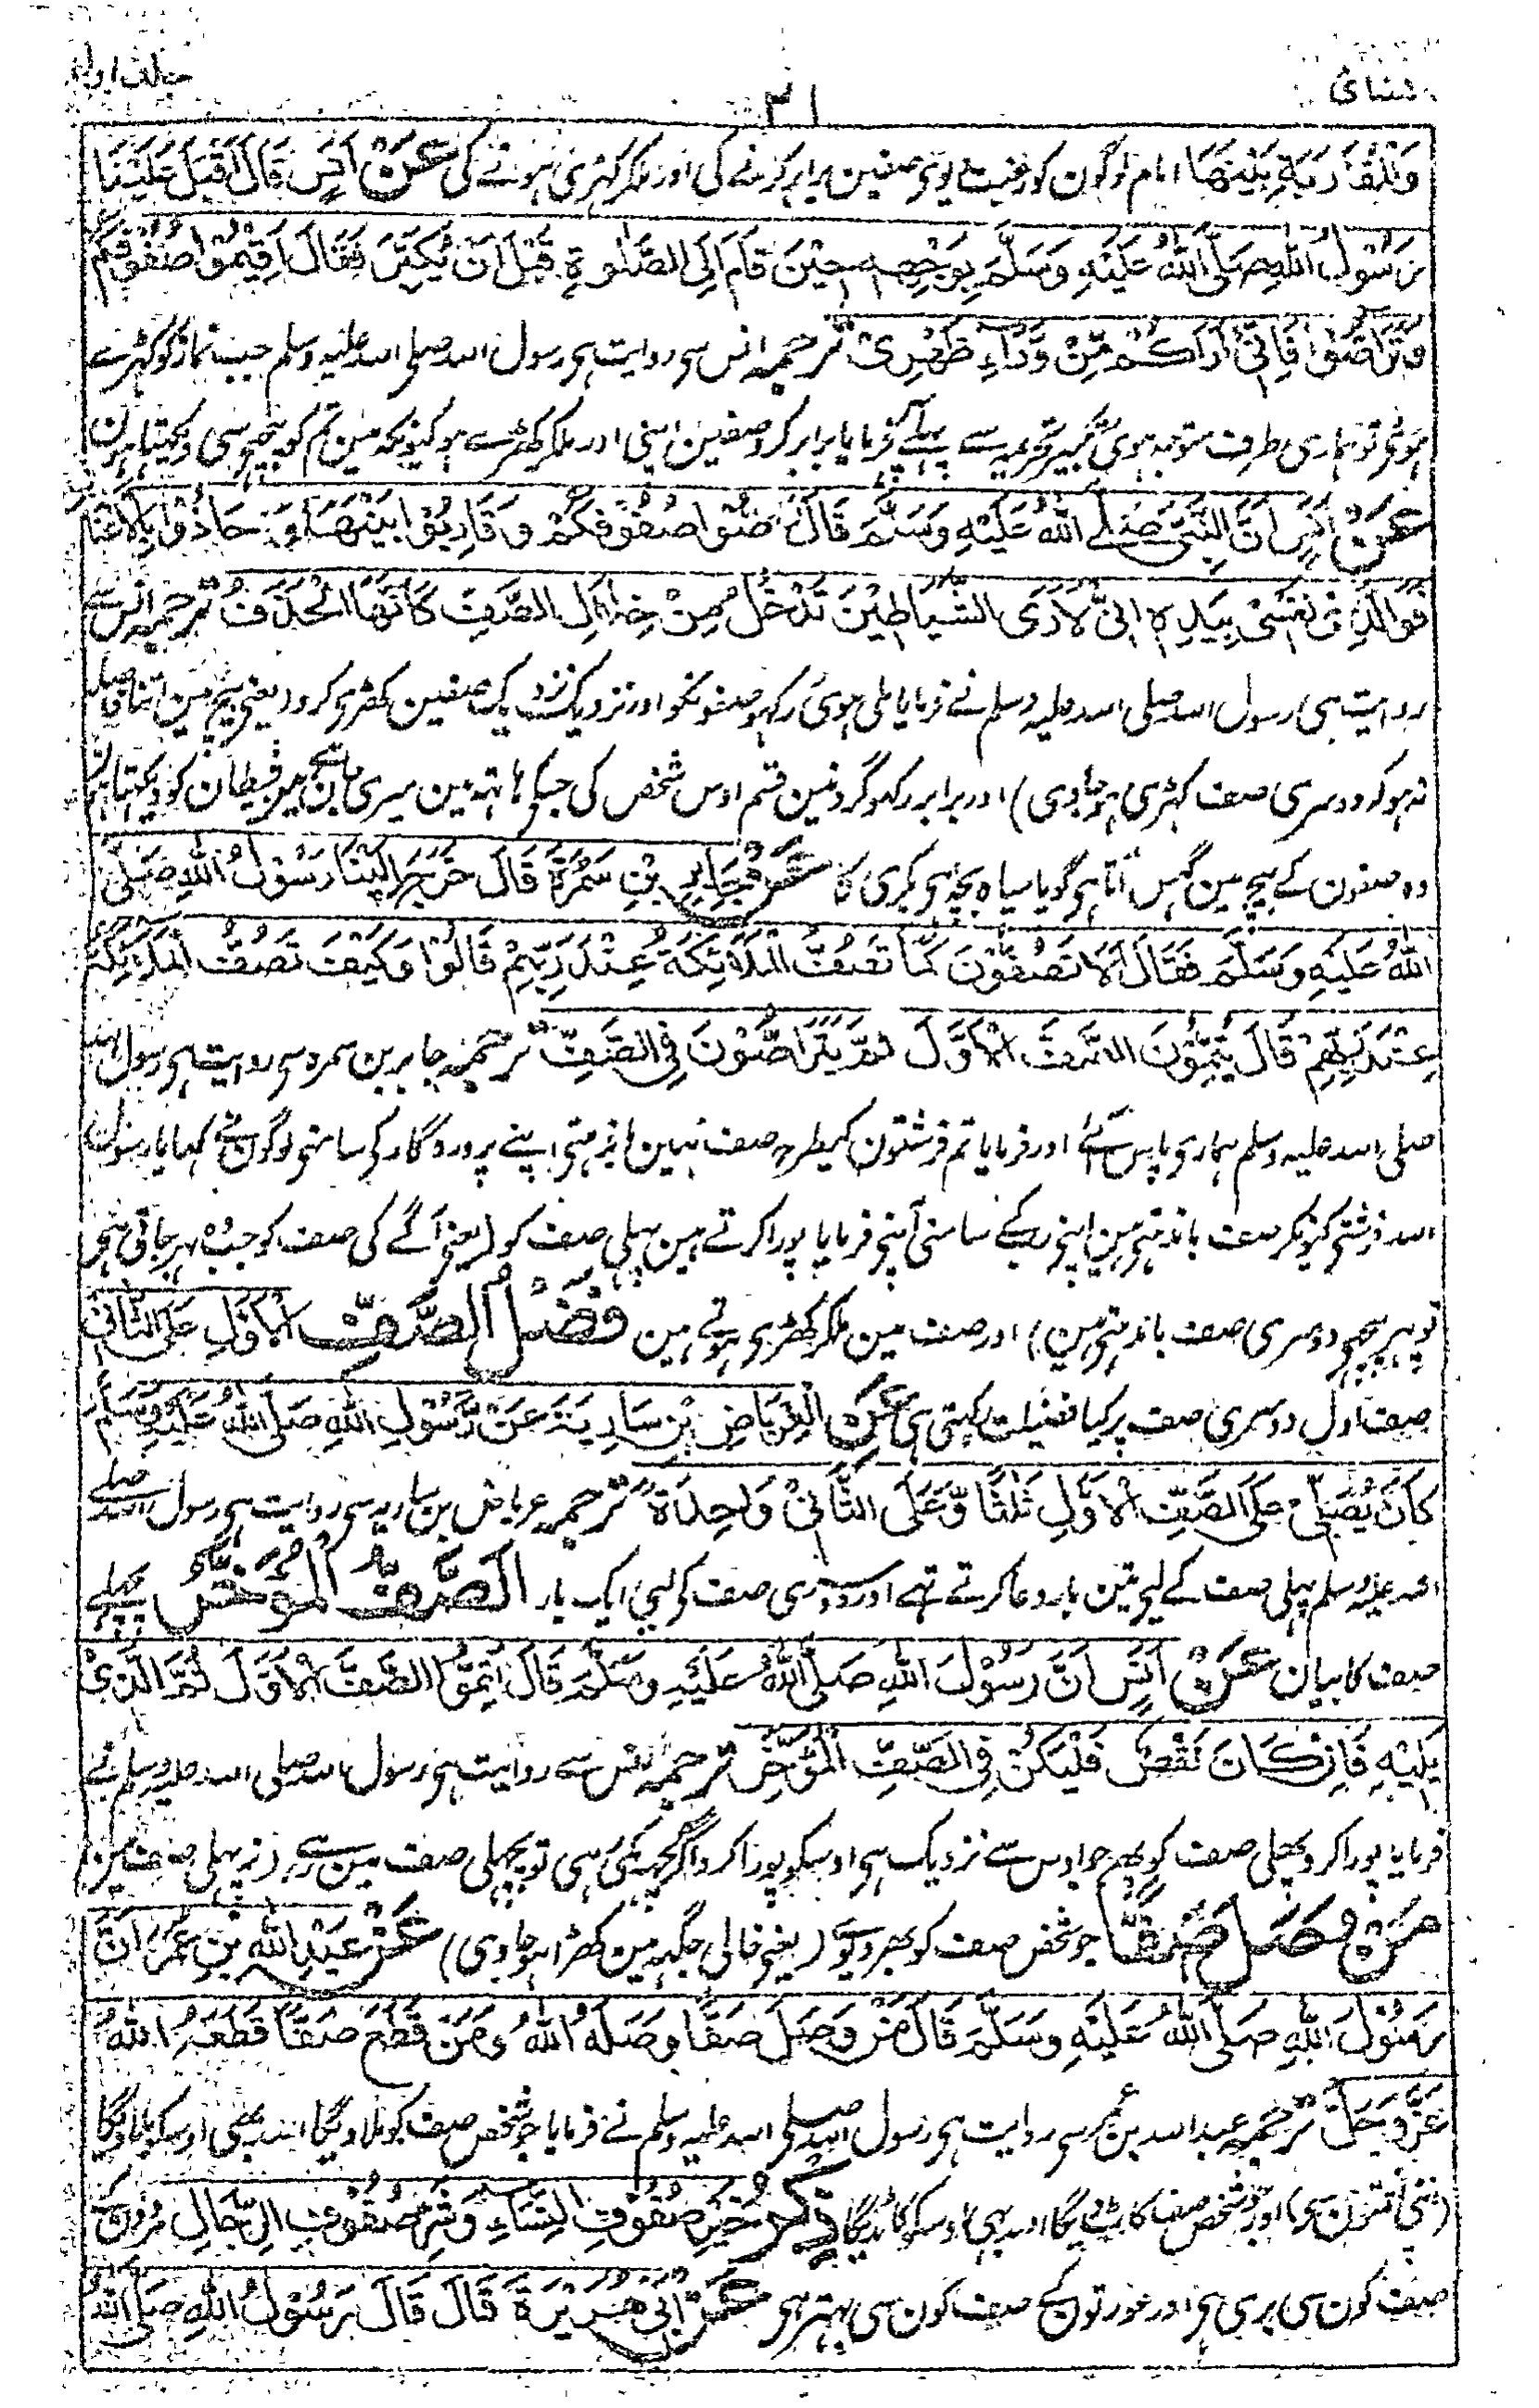 جلد اول
۳۱
نسائی
وَالْمُقَارَبَةِ بَيْنَهَا امام لوگون کو رغبت دیوی صفین برابر کرنے کی اور ملکر کہڑی ہونے کی عَنْ اَنَسٍ قَالَ اَقْبَلَ عَلَيْنَا
رَسُوْلُ اللّٰهِ صَلَّى اللّٰهُ عَلَيْهِ وَسَلَّمَ بِوَجْهِهٖ حِيْنَ قَامَ اِلَى الصَّلٰوةِ قَبْلَ اَنْ يُّكَبِّرَ فَقَالَ اَقِيْمُوْا صُفُوْفَكُمْ
وَتَرَاصُّوْا فَاِنِّيْ اَرَاكُمْ مِّنْ وَّرَاءِ ظَهْرِيْ ترجمہ انس سی روایت ہی رسول اللہ صلی اللہ علیہ وسلم جب نماز کو کہڑے
ہوئی تو ہماری طرف متوجہ ہوئی تکبیر تحریمہ سے پہلے فرمایا برابر کرو صفین اپنی اور ملکر کھڑے ہو کیونکہ مین تم کو پیچھے سی دیکھتا ہون
عَنْ اَنَسٍ اَنَّ النَّبِيَّ صَلَّى اللّٰهُ عَلَيْهِ وَسَلَّمَ قَالَ رَاصُّوْا صُفُوْفَكُمْ وَقَارِبُوْا بَيْنَهَا وَحَاذُوْا بِالْاَعْنَاقِ
فَوَالَّذِيْ نَفْسِيْ بِيَدِهٖ اِنِّيْ لَاَرَى الشَّيَاطِيْنَ تَدْخُلُ مِنْ خِلَالِ الصَّفِّ كَاَنَّهَا الْحَذَفُ ترجمہ انس سے
روایت ہی رسول اللہ صلی اللہ علیہ وسلم نے فرمایا ملی ہوئی رکہو صفونکو اور نزدیک نزدیک صفین کھڑی کرو (یعنی بیچ مین اتنا فاصلہ
نہو کہ دوسری صف کہڑی ہو جاوی) اور برابر رکہو گردنین قسم اوس شخص کی جسکی ہاتہ مین میری جان ہی مین شیطان کو دیکہتا ہون
وہ صفون کے بیچ مین گہس آتا ہی گویا سیاہ بچہ ہی بکری کا عَنْ جَابِرِ بْنِ سَمُرَةَ قَالَ خَرَجَ اِلَيْنَا رَسُوْلُ اللّٰهِ صَلَّى
اللّٰهُ عَلَيْهِ وَسَلَّمَ فَقَالَ اَلَا تَصُفُّوْنَ كَمَا تَصُفُّ الْمَلَائِكَةُ عِنْدَ رَبِّهِمْ قَالُوْا وَكَيْفَ تَصُفُّ الْمَلَائِكَةُ
عِنْدَ رَبِّهِمْ قَالَ يُتِمُّوْنَ الصَّفَّ الْاَوَّلَ ثُمَّ يَتَرَاصُّوْنَ فِي الصَّفِّ ترجمہ جابر بن سمرہ سی روایت ہی رسول اللہ
صلی اللہ علیہ وسلم ہماری پاس آئے اور فرمایا تم فرشتون کیطرح صف نہین باندہتی اپنے پروردگار کی سامنی لوگون نے کہا یا رسول
اللہ فرشتی کیونکر صف باندہتی ہین اپنی رب کے سامنی آپنی فرمایا پورا کرتے ہین پہلی صف کو (یعنی آگے کی صف کو جب وہ بہر جاتی ہی
تو پہر پیچھی دوسری صف باندہتی ہین) اور صف مین ملکر کھڑی ہوتے ہین فَضْلُ الصَّفِّ الْاَوَّلِ عَلَى الثَّانِيْ
صف اول دوسری صف پر کیا فضیلت رکہتی ہی عَنِ الْعِرْبَاضِ بْنِ سَارِيَةَ عَنْ رَّسُوْلِ اللّٰهِ صَلَّى اللّٰهُ عَلَيْهِ وَسَلَّمَ
كَانَ يُصَلِّيْ عَلَى الصَّفِّ الْاَوَّلِ ثَلٰثًا وَّعَلَى الثَّانِيْ وَاحِدَةً ترجمہ عرباض بن ساریہ سی روایت ہی رسول اللہ صلی
اللہ علیہ وسلم پہلی صف کے لیی تین بار دعا کرتے تہے اور دوسری صف کو لیی ایک بار الصَّفُّ الْمُؤَخَّرُ پچھلے
صف کا بیان عَنْ اَنَسٍ اَنَّ رَسُوْلَ اللّٰهِ صَلَّى اللّٰهُ عَلَيْهِ وَسَلَّمَ قَالَ اَتِمُّوا الصَّفَّ الْاَوَّلَ ثُمَّ الَّذِيْ
يَلِيْهِ فَاِنْ كَانَ نَقْصٌ فَلْيَكُنْ فِي الصَّفِّ الْمُؤَخَّرِ ترجمہ انس سے روایت ہی رسول اللہ صلی اللہ علیہ وسلم نے
فرمایا پورا کرو پہلی صف کو پھر جو اوس سے نزدیک ہی اوسکو پورا کرو اگر کچہ کمی رہی تو پچہلی صف مین رہے (نہ پہلی صف مین)
مَنْ وَصَلَ صَفًّا جو شخص صف کو بھر دیوے (یعنی خالی جگہہ مین کھڑا ہو جاوی) عَنْ عَبْدِ اللّٰهِ بْنِ عُمَرَ اَنَّ
رَسُوْلَ اللّٰهِ صَلَّى اللّٰهُ عَلَيْهِ وَسَلَّمَ قَالَ مَنْ وَصَلَ صَفًّا وَصَلَهُ اللّٰهُ وَمَنْ قَطَعَ صَفًّا قَطَعَهُ اللّٰهُ
عَزَّ وَجَلَّ ترجمہ عبد اللہ بن عمر سی روایت ہی رسول اللہ صلی اللہ علیہ وسلم نے فرمایا جو شخص صف کو ملا دیگا اللہ بھی اوسکو ملا دیگا
اور جو شخص صف کاٹ دیگا اللہ بھی اوسکو کاٹ دیگا ذِكْرُ خَيْرِ صُفُوْفِ النِّسَاءِ وَشَرِّ صُفُوْفِ الرِّجَالِ مردونکی
صف کون سی بری ہی اور عورتونکی صف کون سی بہتر ہی عَنْ اَبِيْ هُرَيْرَةَ قَالَ قَالَ رَسُوْلُ اللّٰهِ صَلَّى اللّٰهُ